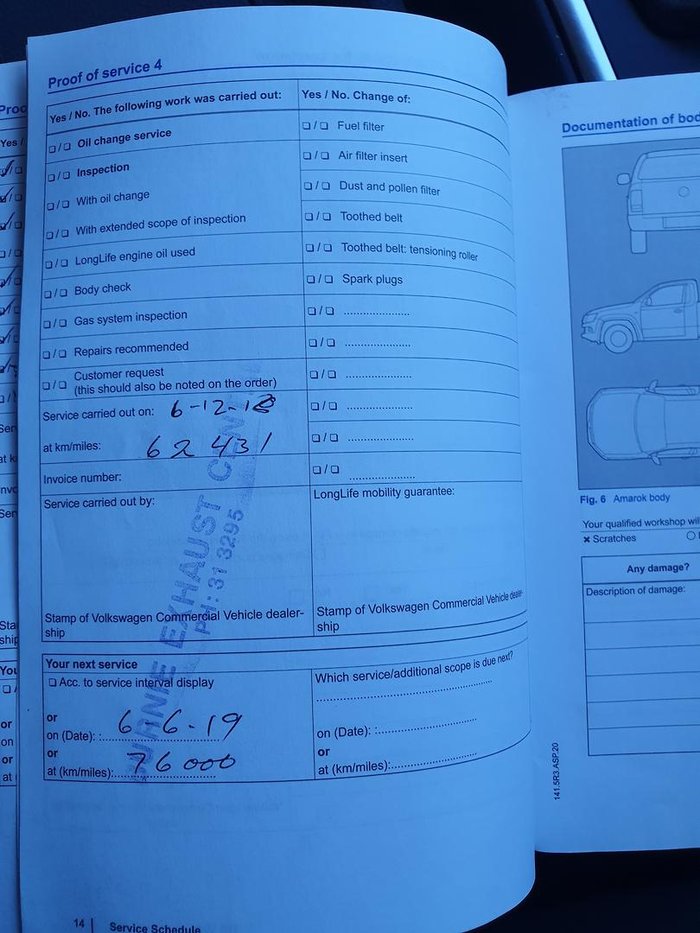 Proof of service 4
Yes / No. The following work was carried out:
❏ / ❏ Oil change service
❏ / ❏ Inspection
❏ / ❏ With oil change
❏ / ❏ With extended scope of inspection
❏ / ❏ LongLife engine oil used
❏ / ❏ Body check
❏ / ❏ Gas system inspection
❏ / ❏ Repairs recommended
❏ / ❏ Customer request
(this should also be noted on the order)
Service carried out on: 6-12-18
at km/miles: 62 431
Invoice number:
Service carried out by:
Stamp of Volkswagen Commercial Vehicle dealer-
ship
Yes / No. Change of:
❏ / ❏ Fuel filter
❏ / ❏ Air filter insert
❏ / ❏ Dust and pollen filter
❏ / ❏ Toothed belt
❏ / ❏ Toothed belt: tensioning roller
❏ / ❏ Spark plugs
❏ / ❏ ....................
❏ / ❏ ....................
❏ / ❏ ....................
❏ / ❏ ....................
❏ / ❏ ....................
❏ / ❏ ....................
LongLife mobility guarantee:
Stamp of Volkswagen Commercial Vehicle dealer-
ship
EXHAUST
PH: 31 3295
Your next service
❏ Acc. to service interval display
or
on (Date): 6-6-19
or
at (km/miles): 76 000
Which service/additional scope is due next?
on (Date):
or
at (km/miles):
14 | Service Schedule
Documentation of
Fig. 6 Amarok body
Your qualified workshop
✖ Scratches
Any damage?
Description of damage:
141.5R3.ASP.20